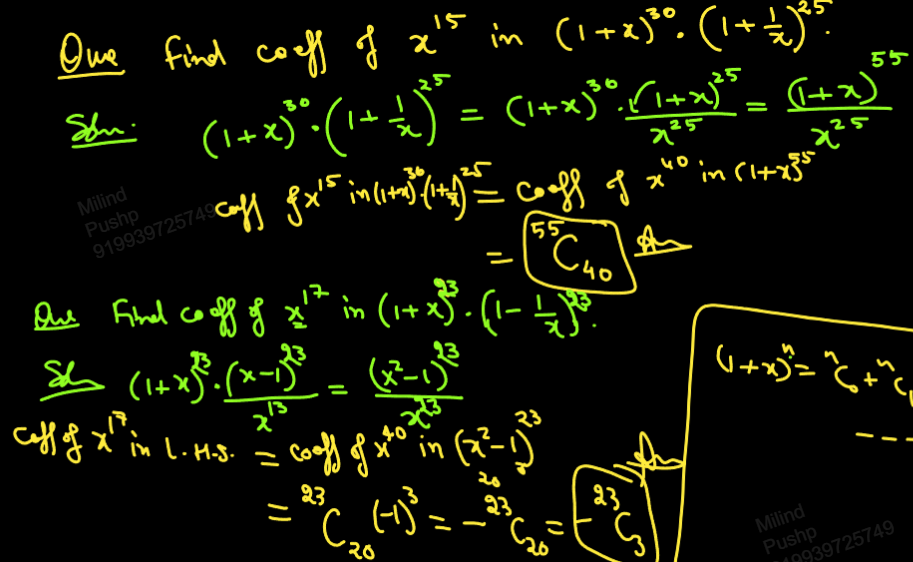 Que Find coeff of x^15 in (1+x)^30 . (1+1/x)^25.
Soln. (1+x)^30 . (1+1/x)^25 = (1+x)^30 . (1+x)^25/x^25 = (1+x)^55/x^25
coeff of x^15 in (1+x)^30 (1+1/x)^25 = coeff of x^40 in (1+x)^55
= ^55C_40 Ans
Que Find coeff of x^17 in (1+x)^23 . (1-1/x)^23.
Sol (1+x)^23 . (x-1)^23/x^13 = (x^2-1)^23/x^23
Coeff of x^17 in L.H.S. = coeff of x^40 in (x^2-1)^23
20 3
= ^23C_20 (-1)^3 = -^23C_20 = -^23C_3 Ans
(1+x)^n = ^nC_0 + ^nC_1
---
Milind
Pushp
919939725749
Milind
Pushp
919939725749